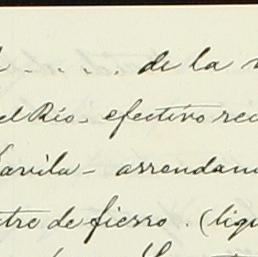 de la
el Rio - efectivo rec
avila - arrendam
tre de fierro. (liqu